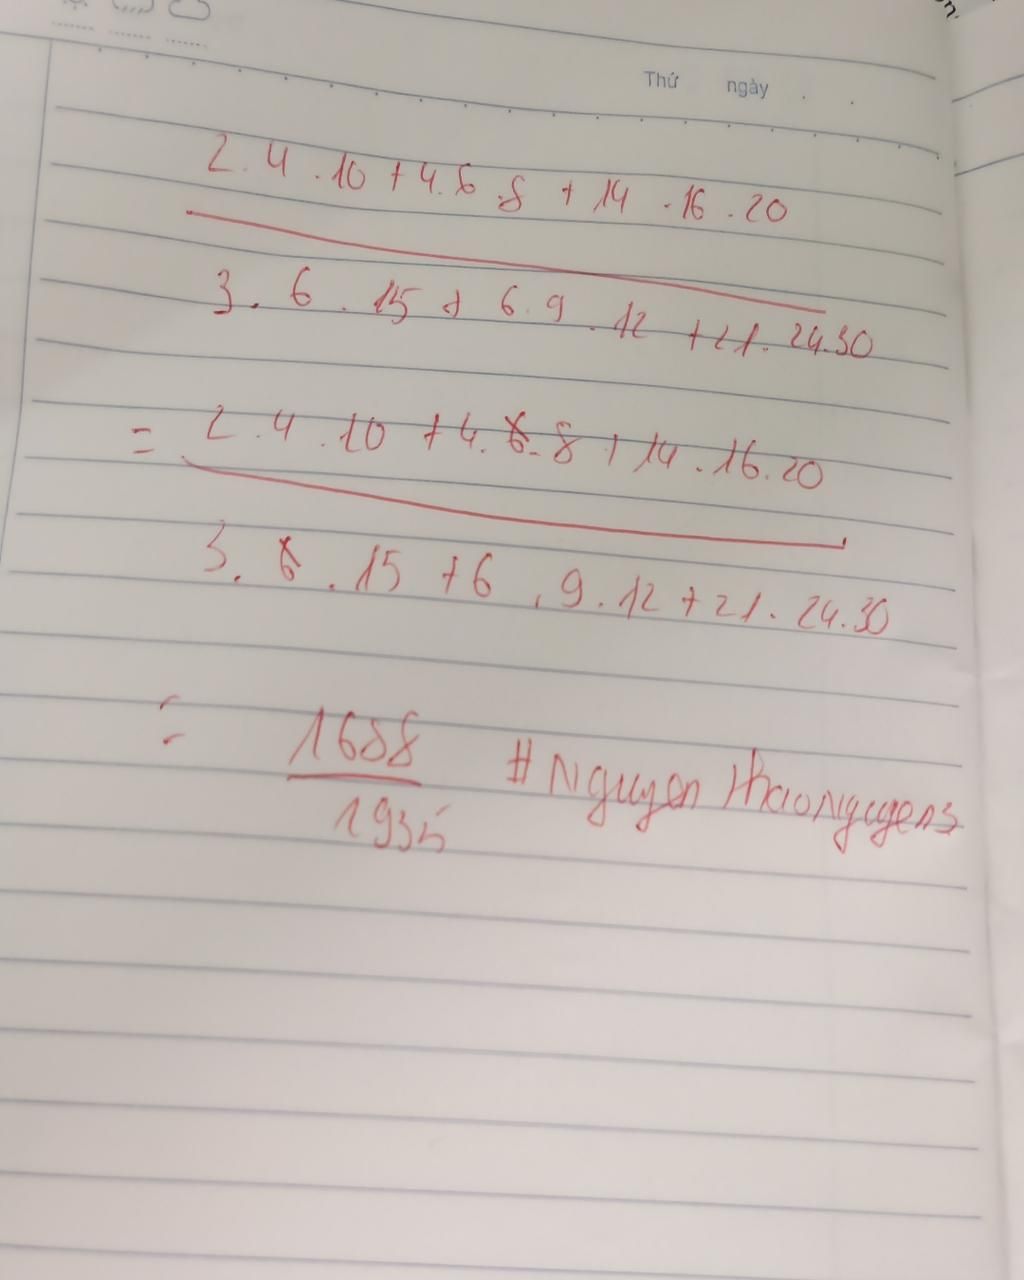 Thứ ngày
2.4.10+4.6.8+14.16.20
3.6.15+6.9.12+21.24.30
= 2.4.10+4.6.8+14.16.20
3.6.15+6.9.12+21.24.30
= 1688 #Nguyen thaonguyens
1935